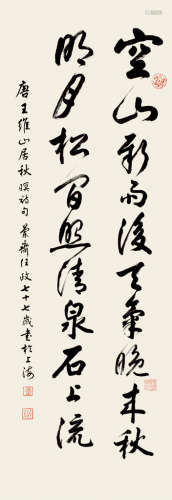 空山新雨後天氣晚來秋
明月松間照清泉石上流
唐王維山居秋暝詩句 景齋任政七十七歲書於上海